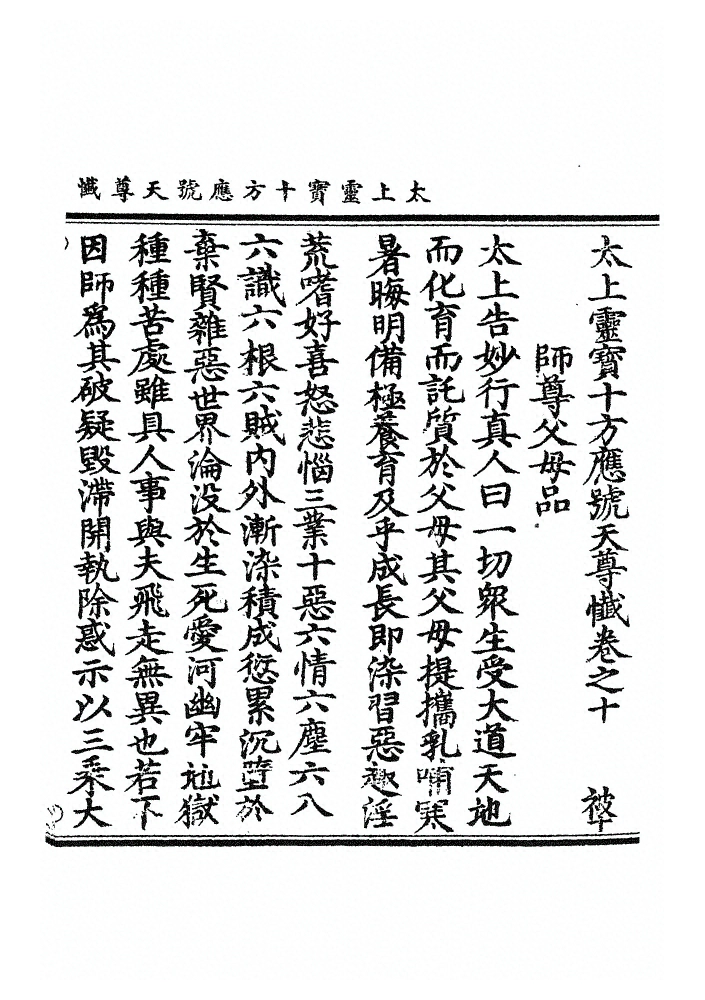 太上靈寶十方應號天尊懺
太上靈寶十方應號天尊懺卷之十
師尊父母品
太上告妙行真人曰一切眾生受大道天地
而化育而託質於父母其父母提攜乳哺寒
暑晦明備極養育及乎成長即染習惡趣淫
荒嗜好喜怒悲惱三業十惡六情六塵六八
六識六根六賊內外漸染積成愆累沉墮於
棄賢雜惡世界淪没於生死愛河幽牢地獄
種種苦處雖具人事與夫飛走無異也若下
因師爲其破疑毀滯開執除惑示以三乘大